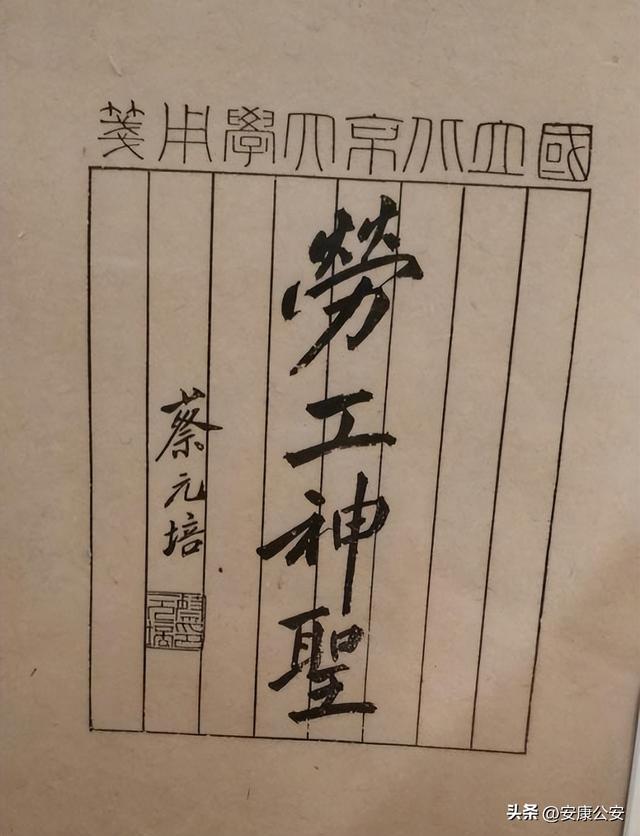 國立北京大學用箋
勞工神聖
蔡元培
头条 @安康公安